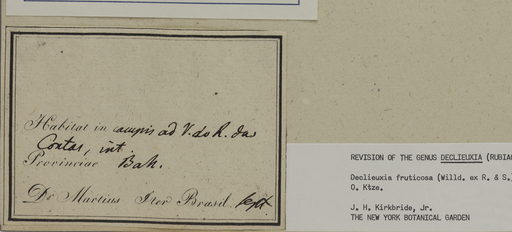 Habitat in campis ad V. do R. das
Contas, int.
Provinciae Bah.
Dr Martius Iter Brasil. Sept.
REVISION OF THE GENUS DECLIEUXIA (RUBIAC
Declieuxia fruticosa (Willd. ex R. & S.)
O. Ktze.
J. H. Kirkbride, Jr.
THE NEW YORK BOTANICAL GARDEN